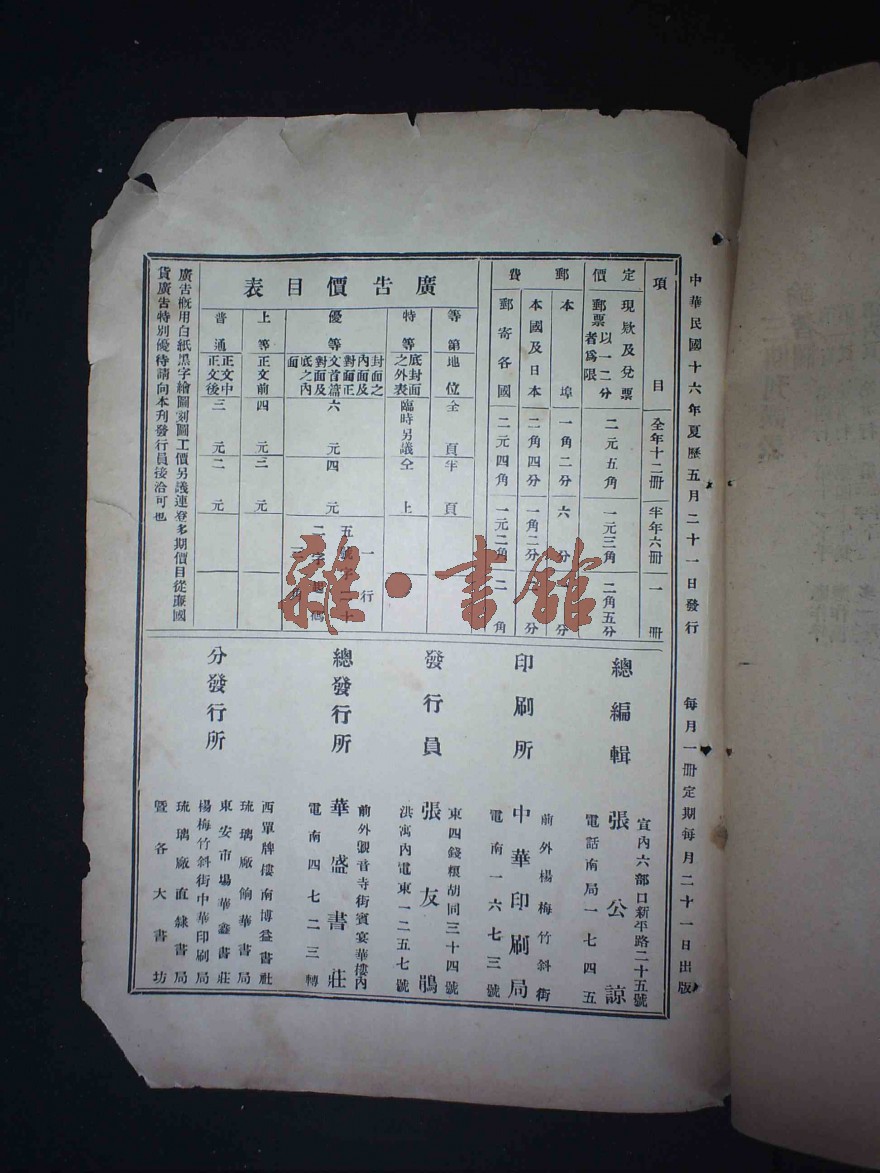 中華民國十六年夏歷五月二十一日發行　每月一冊定期每月二十一日出版
項目　全年十二冊　半年六冊　一冊
定價　現欵及兌票　郵票以一二分者爲限　二元五角　一元三角　二角五分
郵費　本埠　一角二分　六分　分
本國及日本　二角四分　一角二分　分
郵寄各國　二元四角　一元二角　二角
廣告價目表
等第　地位　全頁　半頁
特等　底封面之外表　臨時另議　仝上
優等　封面之內面及對面正文首篇對面及底之內面　六元　四元
上等　正文前　四元　三元
普通　正文中正文後　三元　二元
一行
五號字二十
二字起碼
三角
廣告概用白紙黑字繪圖刻圖工價另議連登多期價目從廉國
貨廣告特別優待請向本刊發行員接洽可也
總編輯　張公諒
宣內六部口新平路二十五號
電話南局一七四五
印刷所　中華印刷局
前外楊梅竹斜街
電南一六七三號
發行員　張友鵑
東四錢糧胡同三十四號
洪寓內電東一二五七號
總發行所　華盛書莊
前外觀音寺街賓宴華樓內
電南四七二三轉
分發行所
西單牌樓南博益書社
琉璃廠侖華書局
東安市場華鑫書莊
楊梅竹斜街中華印刷局
琉璃廠直隸書局
暨各大書坊
雜·書館